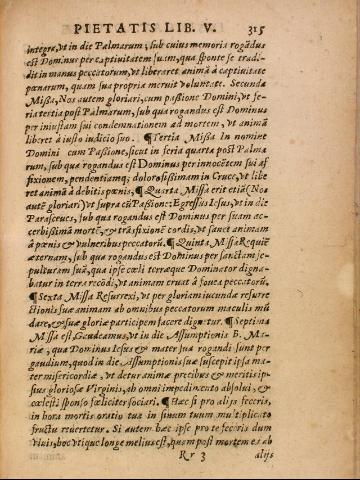 PIETATIS LIB. V. 315
integra, vt in die Palmarum; sub cuius memoria rogādus
est Dominus per captiuitatem suam, qua sponte se tradi-
dit in manus peccatorum, vt liberaret animā à captiuitate
pœnarum, quam sua propria meruit voluntate. Secunda
Missa, Nos autem gloriari, cum passione Domini, vt fe-
ria tertia post Palmarum, sub qua rogandus est Dominus
per iniustam sui condemnationem ad mortem, vt animā
liberet à iusto iudicio suo. ¶ Tertia Missa In nomine
Domini cum Passione, sicut in feria quarta post Palma
rum, sub qua rogandus est Dominus per innocētem sui af
fixionem, pendentiamq; dolorosissimam in Cruce, vt libe
ret animā à debitis pœnis, ¶ Quarta Missa erit etiā (Nos
autē gloriari) vt supra cū Passione: Egressus Iesus, vt in die
Parasceues, sub qua rogandus est Dominus per suam ac-
cerbißimā mortē, & trāsfixionē cordis, vt sanet animam
à pœnis & vulneribus peccatorū. ¶ Quinta Missa Requiē
æternam, sub qua rogandus est Dominus per sanctam se-
pulturam suā, qua ipse cœli terræque Dominator digna-
batur in terra recōdi, vt animam eruat à fouea peccatorū.
¶ Sexta Missa Resurrexi, vt per gloriam iucundæ resurre
ctionis suæ animam ab omnibus peccatorum maculis mū
dare, & suæ gloriæ participem facere dignetur. ¶ Septima
Missa est, Gaudeamus, vt in die Assumptionis B. Ma-
riæ, qua Dominus Iesus & mater sua rogandi sunt per
gaudium, quod in die Assumptionis suæ suscepit ipsa ma-
ter misericordiæ, vt detur animæ precibus & meritis ip-
sius gloriosæ Virginis, ab omni impedimento absolui, &
cœlesti sponso fœliciter sociari. ¶ Hæc si pro alijs feceris,
in hora mortis oratio tua in sinum tuum multiplicato
fructu reuertetur. Si autem hæc ipse pro te feceris dum
viuis, hoc vtique longe melius est, quam post mortem ea ab
Rr 3 alijs